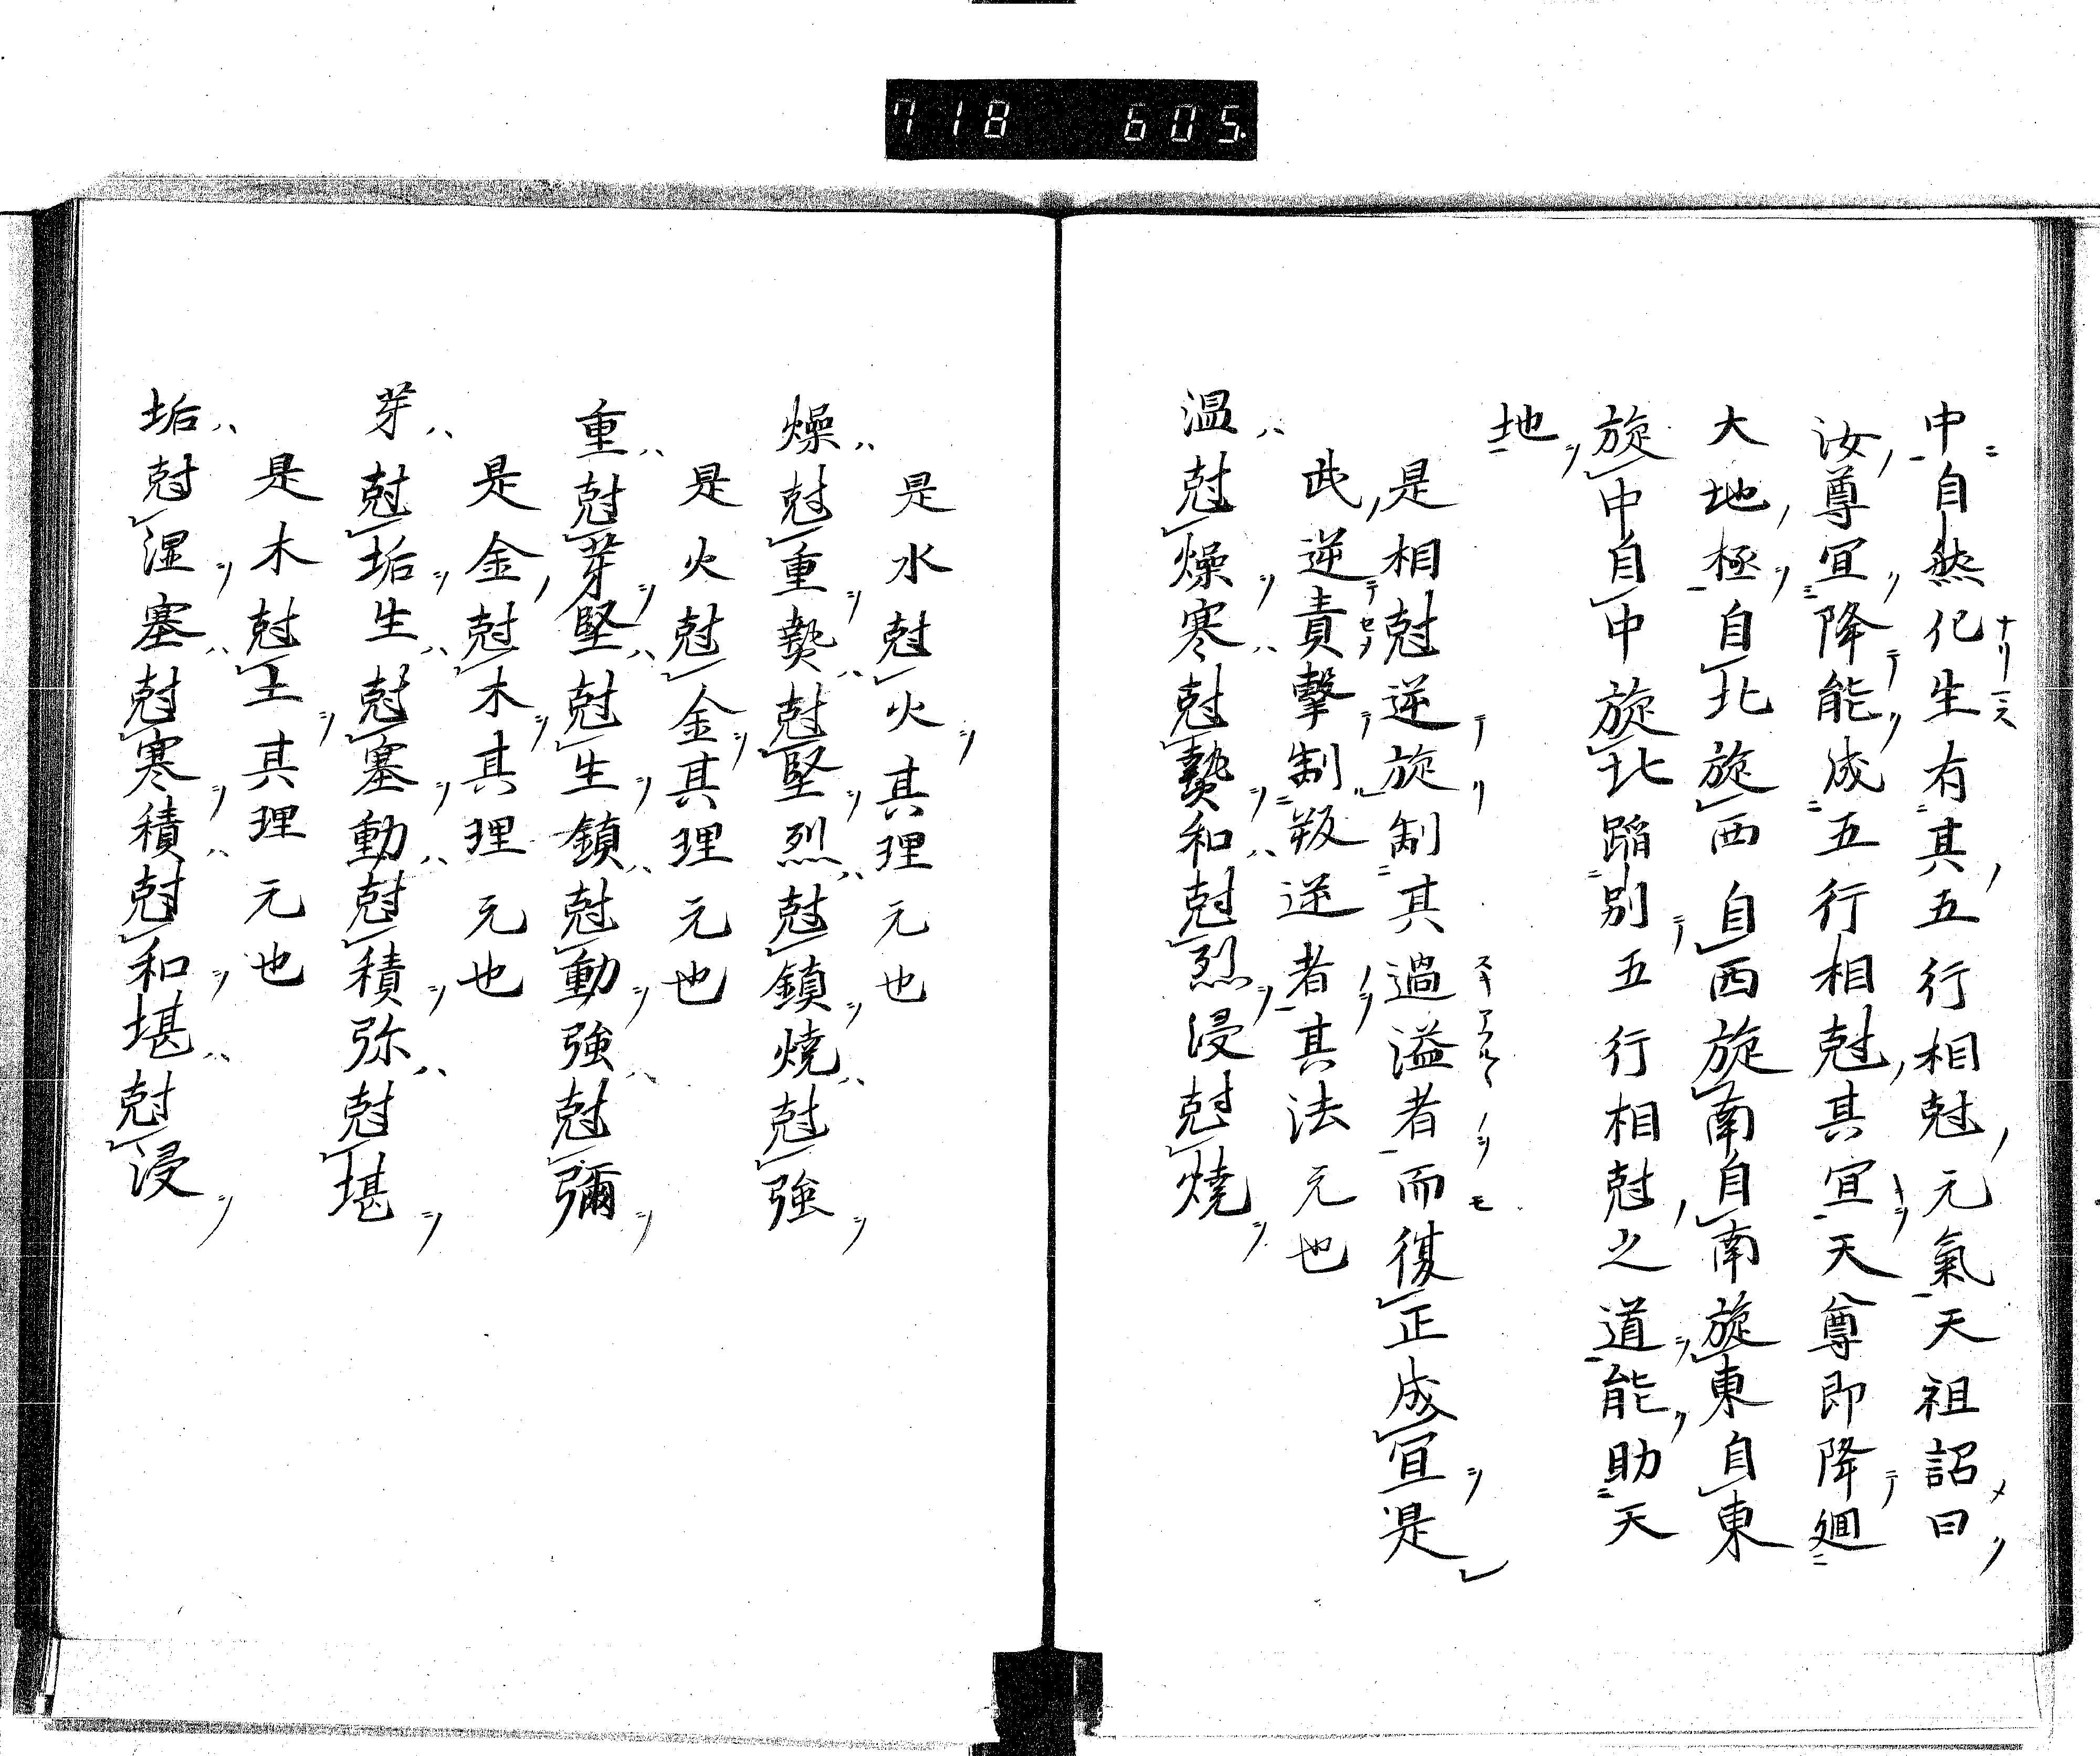 718 605.
中自然化生有其五行相尅元氣天祖詔曰
汝尊宜降能成五行相尅其宜天尊即降廻
大地極自北旋西自西旋南自南旋東自東
旋中自中旋北蹈別五行相尅之道能助天
地
是相尅逆旋制其過溢者而復正成宜是
武逆責擊制叛逆者其法元也
温尅燥寒尅㙯和尅烈浸尅燒
是水尅火其理元也
燥尅重㙯尅堅烈尅鎮燒尅強
是火尅金其理元也
重尅芽堅尅生鎮尅動強尅彌
是金尅木其理元也
芽尅垢生尅塞動尅積弥尅堪
是木尅土其理元也
垢尅湿塞尅寒積尅和堪尅浸